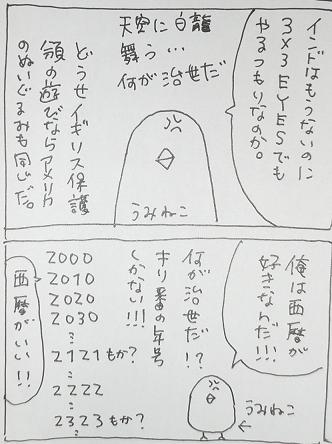 インドはもうないのに
3×3 EYESでも
やるつもりなのか。
天空に白龍
舞う…
何が治世だ
どうせイギリス保護
領の遊びならアメリカ
のぬいぐるみも同じだ。
うみねこ
俺は西暦が
好きなんだ!!!
うみねこ
何が治世だ!?
ホリ番の年号
しかない!!!
2000
2010
2020
2030
:
2121もか?
:
2222
:
2323もか?
:
西暦がいい!!